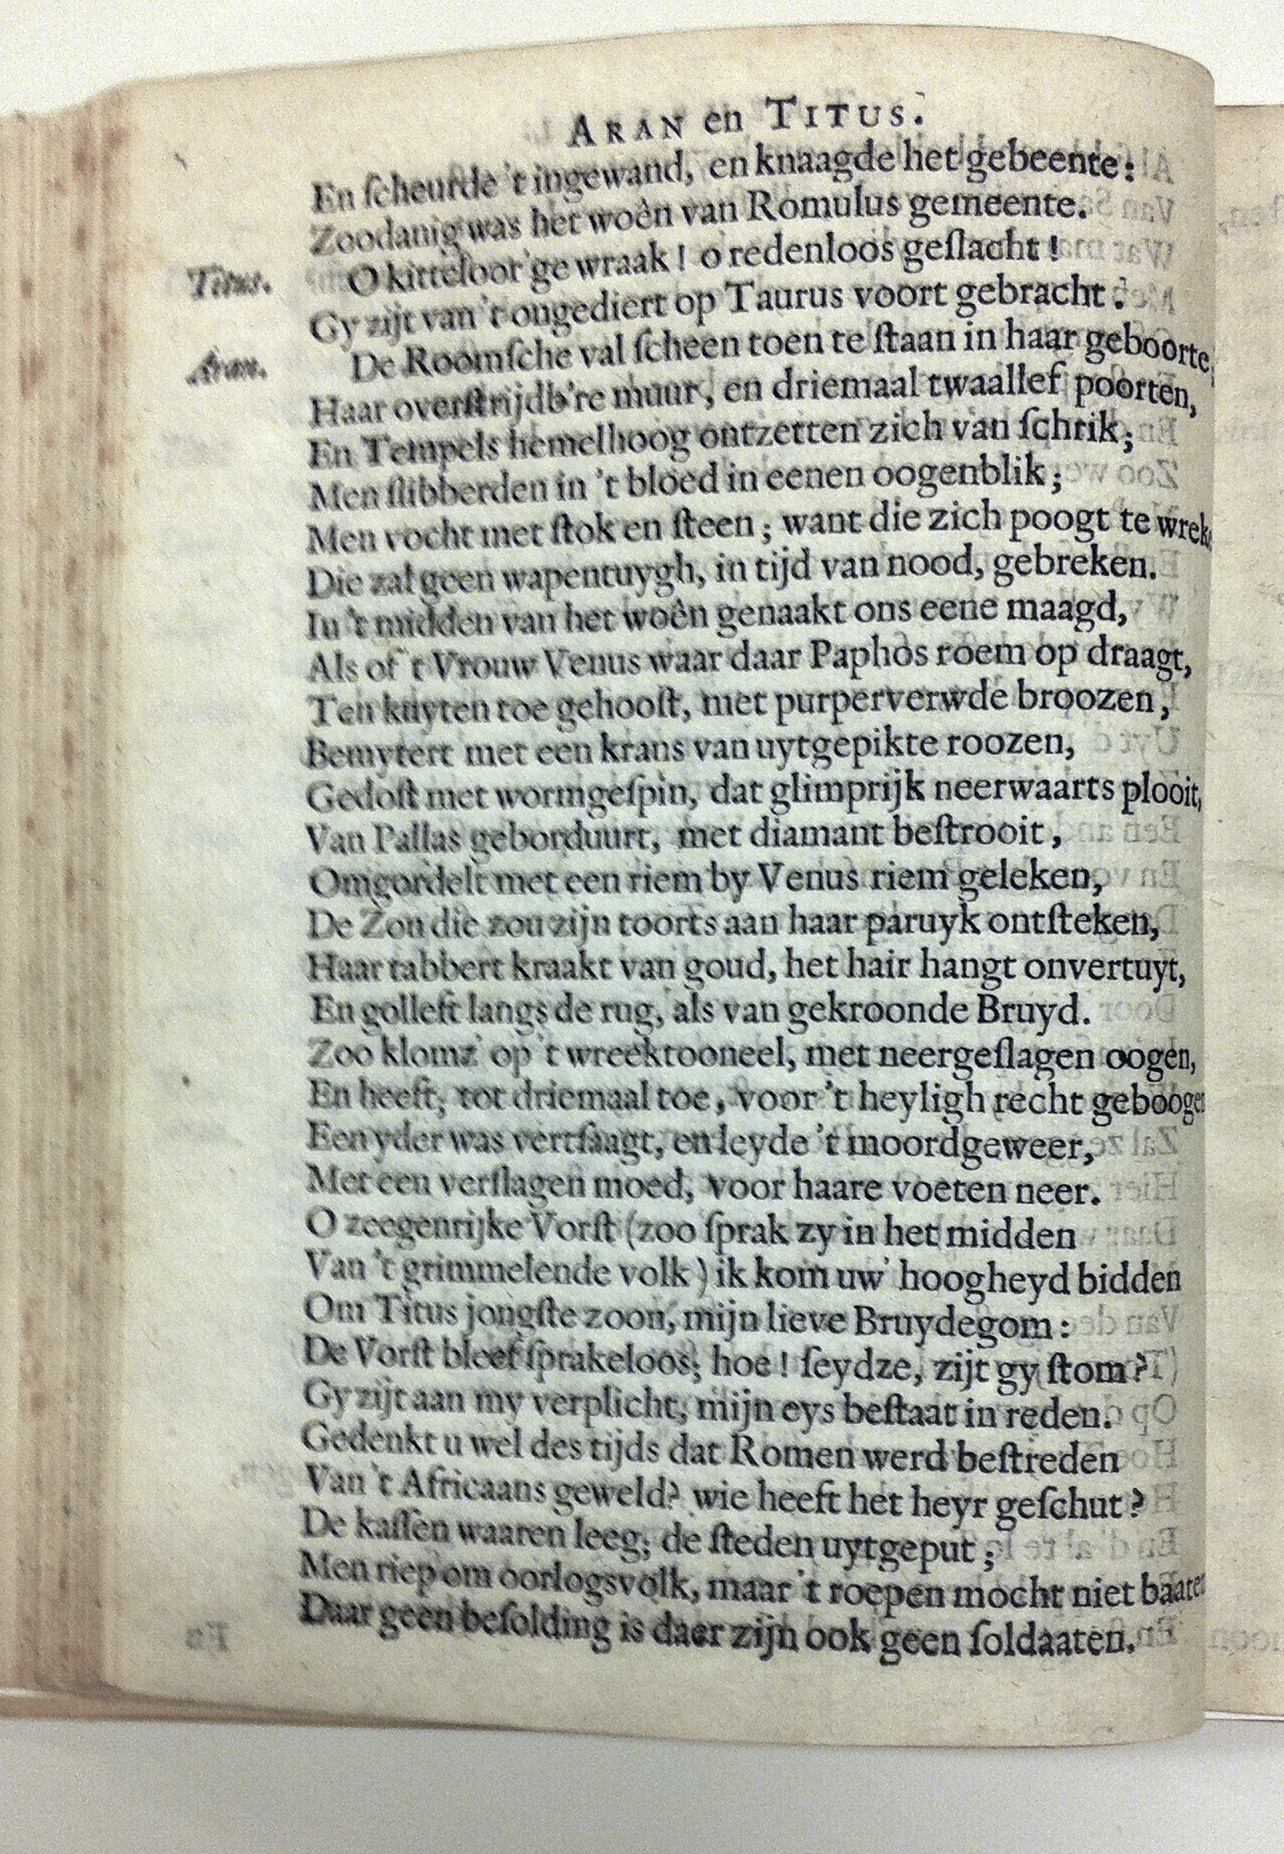 ARAN en TITUS.
En ſcheurde 't ingewand, en knaagde het gebeente:
Zoodanig was het woên van Romulus gemeente.
Titus. O kitteloor'ge wraak! o redenloos geſlacht!
Gy zijt van 't ongediert op Taurus voort gebracht.
Aran. De Roomſche val ſcheen toen te ſtaan in haar geboorte,
Haar overſtrijdb're muur, en driemaal twaallef poorten,
En Tempels hemelhoog ontzetten zich van ſchrik;
Men ſlibberden in 't bloed in eenen oogenblik;
Men vocht met ſtok en ſteen; want die zich poogt te
Die zal geen wapentuygh, in tijd van nood, gebreken.
In 't midden van het woên genaakt ons eene maagd,
Als of 't Vrouw Venus waar daar Paphos roem op draagt,
Ten kuyten toe gehooſt, met purperverwde broozen,
Bemytert met een krans van uytgepikte roozen,
Gedoſt met wormgeſpin, dat glimprijk neerwaarts plooit,
Van Pallas geborduurt, met diamant beſtrooit,
Omgordelt met een riem by Venus riem geleken,
De Zon die zou zijn toorts aan haar paruyk ontſteken,
Haar tabbert kraakt van goud, het hair hangt onvertuyt,
En golleft langs de rug, als van gekroonde Bruyd.
Zoo klomz' op 't wreektooneel, met neergeſlagen oogen,
En heeft, tot driemaal toe, voor 't heyligh recht geboogen
Een yder was vertſaagt, en leyde 't moordgeweer,
Met een verſlagen moed, voor haare voeten neer.
O zeegenrijke Vorſt (zoo ſprak zy in het midden
Van 't grimmelende volk) ik kom uw' hoogheyd bidden
Om Titus jongſte zoon, mijn lieve Bruydegom:
De Vorſt bleef ſprakeloos; hoe! ſeydze, zijt gy ſtom?
Gy zijt aan my verplicht, mijn eys beſtaat in reden.
Gedenkt u wel des tijds dat Romen werd beſtreden
Van 't Africaans geweld? wie heeft het heyr geſchut?
De kaſſen waaren leeg; de ſteden uytgeput;
Men riep om oorlogsvolk, maar 't roepen mocht niet baaten
Daar geen beſolding is daer zijn ook geen ſoldaaten.